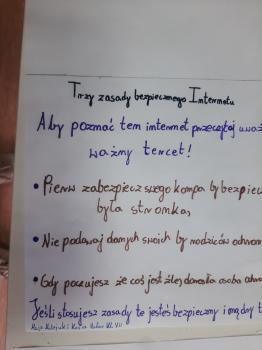 Trzy zasady bezpiecznego Internetu
Aby poznać ten internet przeczytaj uważ
ważny tercet!
• Pierw zabezpiecz swego kompa by bezpiecz
była stronka,
• Nie podawaj danych swoich by rodziców ochron
• Gdy poczujesz że coś jest źle, dorosła osoba ochro
Jeśli stosujesz zasady te jesteś bezpieczny i mądry t
Kl. VII